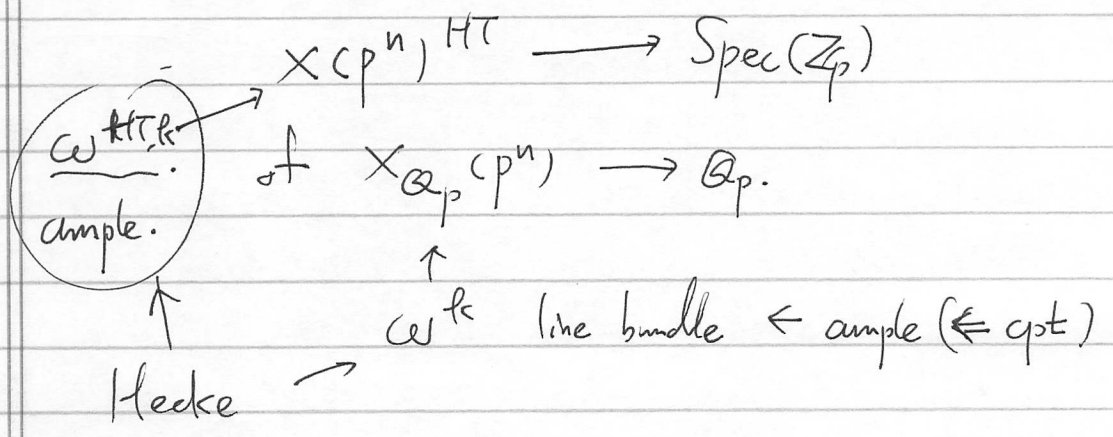 X(pⁿ)^HT ⟶ Spec(ℤ_p)
ω^HT,k. of X_ℚ_p(pⁿ) ⟶ ℚ_p.
ample.
↑ ↑
ω^k line bundle ← ample (⇐ cpt)
Hecke →